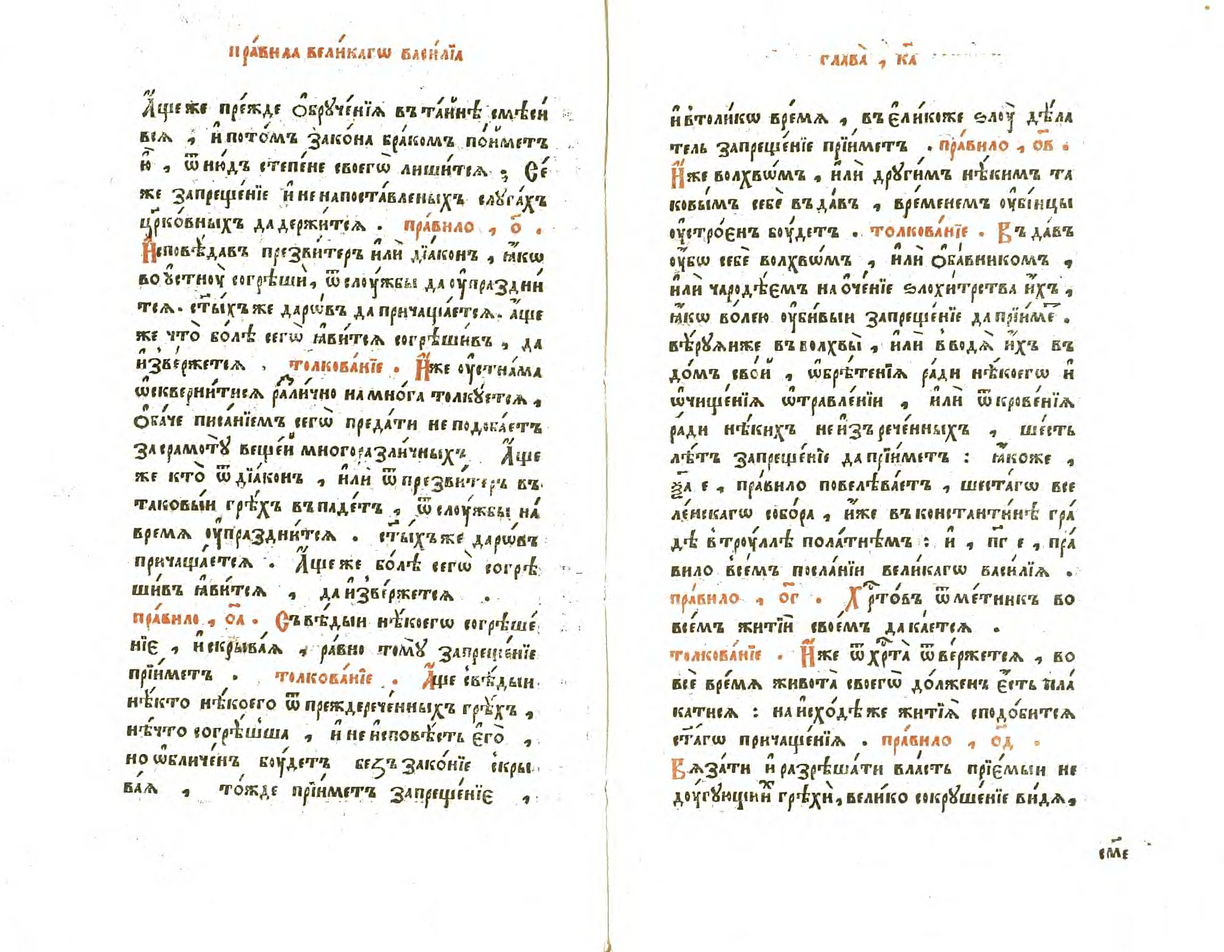 пра́вила вели́кагѡ васи́лїа
А҆́ще же пре́жде ѻ҆бруче́нїѧ въ та́инѣ смѣси́
всѧ , и҆ пото́мъ зако́на бра́комъ по́и҆метъ
ю҆̀ , ѿню́дъ степе́не своегѡ̀ лиши́тсѧ ; Се́
же запреще́нїе и҆ не на поста́вленыхъ слуга́хъ
цр҃ко́вныхъ да держи́тсѧ . пра́вило , о҃ .
И҆сповѣ́давъ презви́теръ и҆лѝ дїа́конъ , ꙗ҆́кѡ
во ᲂу҆стноу̀ согрѣшѝ , ѿ слоу́жбы да ᲂу҆праздни́
тсѧ . ст҃ы́хъ же даро́въ да причаща́етсѧ . а҆́ще
же что̀ бо́лѣ сегѡ̀ ꙗ҆ви́тсѧ согрѣши́въ , да
и҆зве́ржетсѧ . толкова́нїе . И҆́же ᲂу҆стна́ма
ѡ҆скверни́тисѧ разли́чно на мно́га толку́етсѧ ,
Ѻ҆ба́че писа́нїемъ сегѡ̀ преда́ти не подоба́етъ
за срамотꙋ̀ веще́й многоразли́чныхъ . А҆́ще
же кто̀ ѿ дїа́конъ , и҆лѝ ѿ презви́теръ въ
таковы́и грѣ́хъ въпаде́тъ , ѿ слоу́жбы на́
времѧ ᲂу҆праздни́тсѧ . ст҃ы́хъ же даро́въ
причаща́етсѧ . А҆́ще же бо́лѣ сегѡ̀ согрѣ
ши́въ ꙗ҆ви́тсѧ , да и҆зве́ржетсѧ .
пра́вило , о҃а . Съвѣ́дыи нѣ́коегѡ согрѣше́
нїе , и҆ скрыва́ѧ , ра́вно томꙋ̀ запреще́нїе
прїи́метъ . толкова́нїе . А҆́ще свѣ́дыи
нѣ́кто нѣ́коего ѿ преждерече́нныхъ грѣ́хъ ,
нѣ́что согрѣ́шша , и҆ не и҆сповѣ́сть є҆го̀ ,
но ѡ҆бличе́нъ боу́детъ безъ зако́нїе скры
ва́ѧ , то́жде прїи́метъ запреще́нїе ,
глава̀ , к҃а
и҆ в толи́кѡ вре́мѧ , въ є҆ли́коже ѕлоу̀ дѣ́ла
тель запреще́нїе прїи́метъ . пра́вило , о҃в .
И҆́же волхвѡ́мъ , и҆лѝ други́мъ нѣ́кимъ та
ковы́мъ себѐ въда́въ , вре́менемъ ᲂу҆бі́ицы
ᲂу҆стро́енъ боу́детъ . толкова́нїе . Въда́въ
ᲂу҆́бѡ себѐ волхвѡ́мъ , и҆лѝ ѻ҆ба́вникомъ ,
и҆лѝ чародѣ́емъ на ѻ҆че́нїе ѕлохи́трства и҆́хъ ,
ꙗ҆́кѡ во́лею ᲂу҆би́выи запреще́нїе да прїи́ме .
вѣ́руѧ и҆же въ волхвы̀ , и҆лѝ вводѧ̀ и҆́хъ въ
до́мъ сво́й , ѡ҆брѣ́тенїѧ ра́ди нѣ́коегѡ и҆
ѡ҆чище́нїѧ ѡ҆травле́нїи , и҆лѝ ѿкрове́нїѧ
ра́ди нѣ́кихъ не и҆зърече́нныхъ , ше́сть
лѣ́тъ запреще́нїе да прїи́метъ : ꙗ҆́коже ,
ѯ҃а е , пра́вило повелѣва́етъ , шеста́гѡ все
ле́нскагѡ собо́ра , и҆́же въ константи́нѣ гра́
дѣ в троу́ллѣ пола́тнѣмъ : и҆ , п҃г е , пра́
вило в се́мъ посла́нїи вели́кагѡ васи́лїа .
пра́вило , о҃г . Хр҃то́въ ѿме́тникъ во
все́мъ житїѝ свое́мъ да ка́етсѧ .
толкова́нїе . И҆́же ѿ хр҃та̀ ѿве́ржетсѧ , во
всѐ вре́мѧ живота̀ своегѡ̀ до́лженъ є҆́сть пла́
катисѧ : на и҆схо́дѣ же житїѧ̀ сподо́битсѧ
ст҃а́гѡ причаще́нїѧ . пра́вило , о҃д .
Вѧза́ти и҆ разрѣша́ти вла́сть прїе́мыи не
доу́гующиⷯ грѣхѝ , вели́ко сокруше́нїе ви́дѧ ,
сме